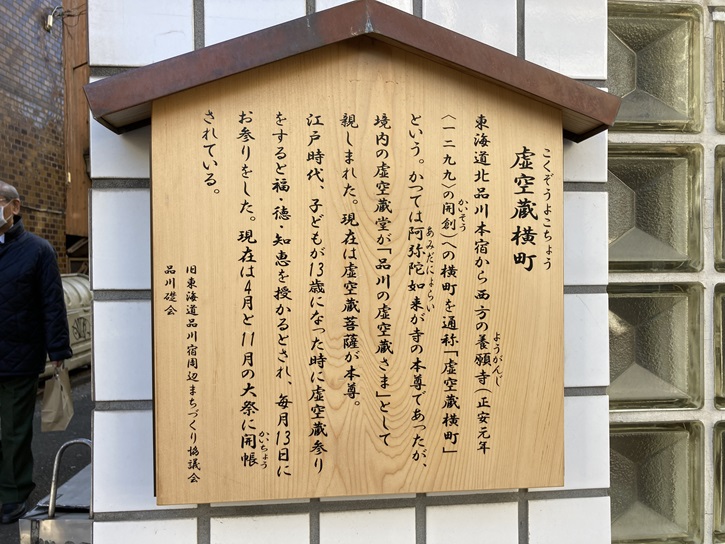 こくぞうよこちょう
虚空蔵横町
ようがんじ
東海道北品川本宿から西方の養願寺(正安元年
かいそう
〈一二九九〉の開創)への横町を通称「虚空蔵横町」
あみだにょらい
という。かつては阿弥陀如来が寺の本尊であったが、
境内の虚空蔵堂が「品川の虚空蔵さま」として
親しまれた。現在は虚空蔵菩薩が本尊。
江戸時代、子どもが13歳になった時に虚空蔵参り
をすると福・徳・知恵を授かるとされ、毎月13日に
かいちょう
お参りをした。現在は4月と11月の大祭に開帳
されている。
旧東海道品川宿周辺まちづくり協議会
品川礎会